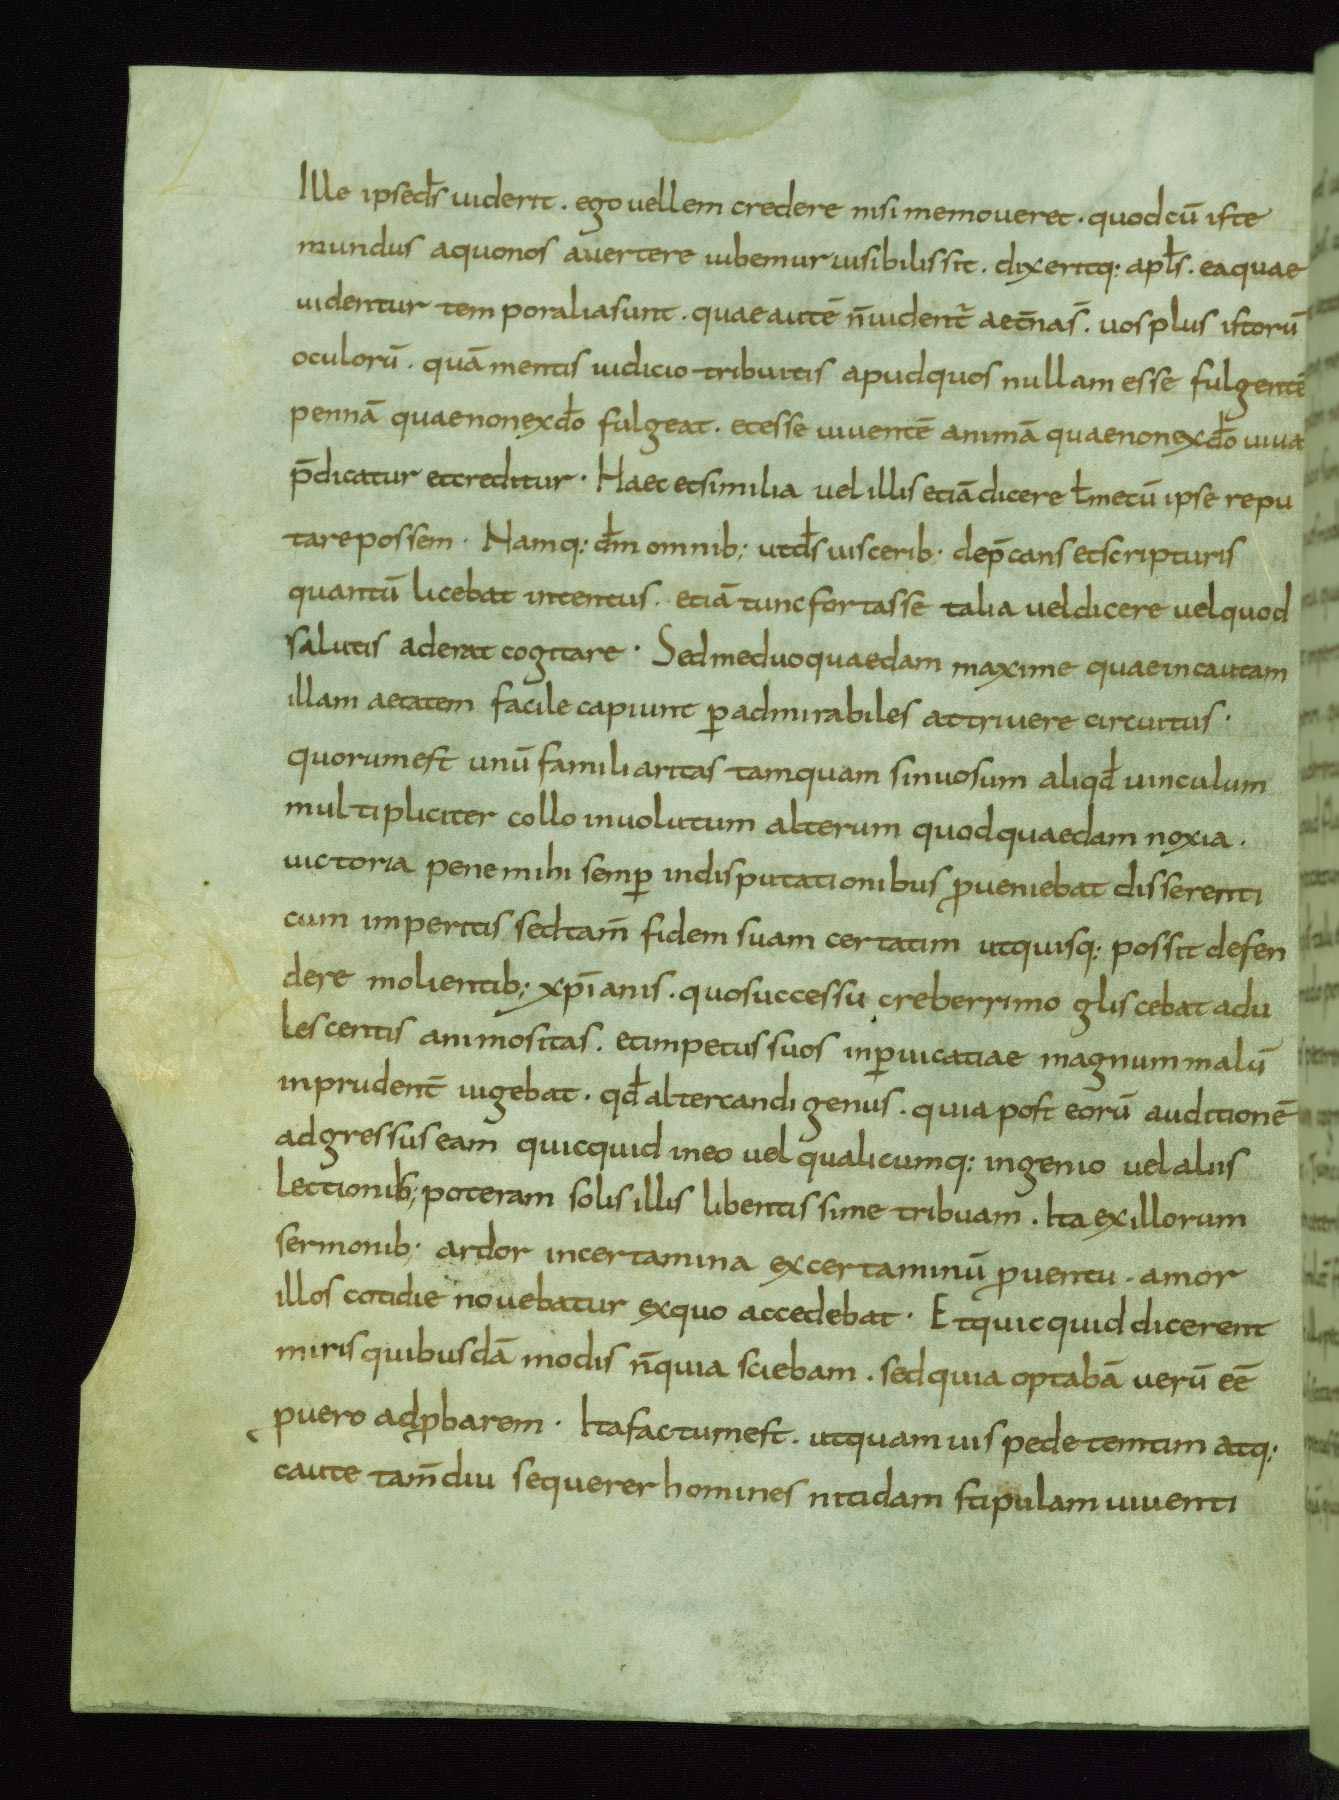 Ille ipsed̄s uiderit . ego uellem credere nisi memoueret . quodcū iste
mundus aquonos auertere iubemur uisibilissit . dixeritq; apl̄s . eaquae
uidentur temporaliasunt . quaeautē n̄uident̄ aet̄nas̄ . uos plus istorū
oculorū . quā mentis iudicio tribuitis apudquos nullam esse fulgentē
pennā quaenonexdō fulgeat . etesse uiuentē animā quaenonexdō uiua
p̄dicatur etcreditur . Haec etsimilia uel illis etiādicere ł mecū ipse repu
tarepossem . Namq; dm̄ omnib; utds̄ uiscerib; dep̄cans etscripturis
quantū licebat intentus . etiā tuncfortasse talia ueldicere uelquod
salutis aderat cogitare . Sedmeduoquaedam maxime quaeincautam
illam aetatem facile capiunt ꝑadmirabiles attriuere circuitus .
quorumest unū familiaritas tamquam sinuosum aliqd̄ uinculum
multipliciter collo inuolutum alterum quodquaedam noxia .
uictoria penemihi semꝑ indisputationibus ꝓueniebat disserenti
cum imperitis sedtam̄ fidem suam certatim utquisq; possit defen
dere molientib; xp̄ianis . quosuccessu creberrimo gliscebat adu
lescentis animositas . etimpetus suos inꝑuicatiae magnummalū
inprudent̄ uigebat . qd̄ altercandi genus . quia post eorū auditionē
adgressuseam quicquid ineo uel qualicumq; ingenio uelaliis
lectionib; poteram solis illis libentissime tribuam . Ita exillorum
sermonib; ardor incertamina excertaminū ꝓuentu . amor
illos cotidie nouebatur exquo accedebat . Etquicquid dicerent
miris quibusdā modis n̄quia sciebam . sedquia optabā uerū eē
puero adꝓbarem . Itafactumest . utquamuis pedetemtim atq;
caute tam̄diu sequerer homines nitidam stipulam uiuenti